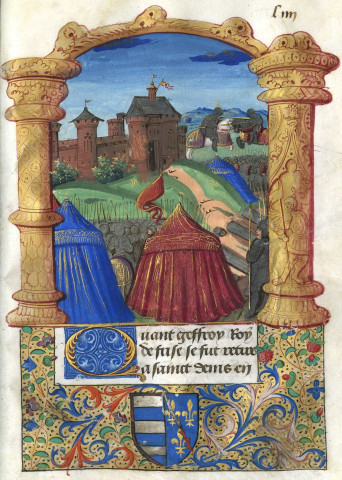 liiii
Quant geffroy Roy
de frise se fut retrait
a sainct denis en